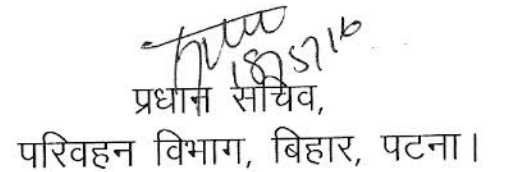 18/5/16
प्रधान सचिव,
परिवहन विभाग, बिहार, पटना।